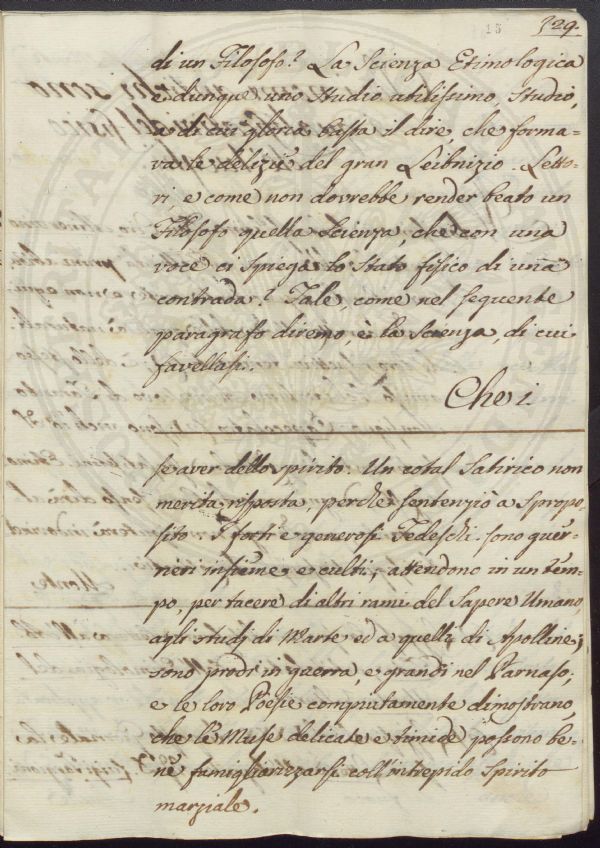 15
129.
di un Filosofo? La Scienza Etimologica
è dunque uno studio utilissimo, studio,
a di cui gloria basta il dire che forma-
va le delizie del gran Leibnizio. Letto-
ri, e come non dovrebbe render beato un
Filosofo quella Scienza, che con una
voce ci spiega lo stato fisico di una
contrada? Tale, come nel seguente
paragrafo diremo, è la Scienza, di cui
favellasi.
Che i
se aver dello spirito. Un cotal Satirico non
merita risposta, perchè sentenziò a spropo-
sito. I forti e generosi Tedeschi sono guer-
rieri insieme e culti; attendono in un tem-
po, per tacere di altri rami del Sapere Umano,
agli studj di Marte ed a quelli di Apolline;
sono prodi in guerra, e grandi nel Parnaso;
e le loro Poesie compiutamente dimostrano,
che le Muse delicate e timide possono be-
ne famigliarizzarsi coll'intrepido Spirito
marziale.